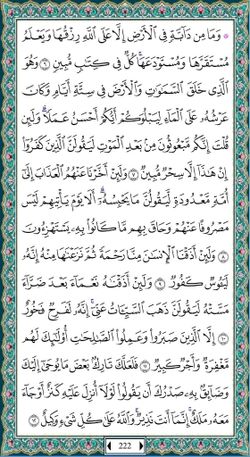 ۞ وَمَا مِن دَآبَّةٍ فِى ٱلْأَرْضِ إِلَّا عَلَى ٱللَّهِ رِزْقُهَا وَيَعْلَمُ
مُسْتَقَرَّهَا وَمُسْتَوْدَعَهَا ۚ كُلٌّ فِى كِتَٰبٍ مُّبِينٍ ٦ وَهُوَ
ٱلَّذِى خَلَقَ ٱلسَّمَٰوَٰتِ وَٱلْأَرْضَ فِى سِتَّةِ أَيَّامٍ وَكَانَ
عَرْشُهُۥ عَلَى ٱلْمَآءِ لِيَبْلُوَكُمْ أَيُّكُمْ أَحْسَنُ عَمَلًا ۗ وَلَئِن
قُلْتَ إِنَّكُم مَّبْعُوثُونَ مِنۢ بَعْدِ ٱلْمَوْتِ لَيَقُولَنَّ ٱلَّذِينَ كَفَرُوٓا۟
إِنْ هَٰذَآ إِلَّا سِحْرٌ مُّبِينٌ ٧ وَلَئِنْ أَخَّرْنَا عَنْهُمُ ٱلْعَذَابَ إِلَىٰٓ
أُمَّةٍ مَّعْدُودَةٍ لَّيَقُولُنَّ مَا يَحْبِسُهُۥٓ ۗ أَلَا يَوْمَ يَأْتِيهِمْ لَيْسَ
مَصْرُوفًا عَنْهُمْ وَحَاقَ بِهِم مَّا كَانُوا۟ بِهِۦ يَسْتَهْزِءُونَ
٨ وَلَئِنْ أَذَقْنَا ٱلْإِنسَٰنَ مِنَّا رَحْمَةً ثُمَّ نَزَعْنَٰهَا مِنْهُ إِنَّهُۥ
لَيَـُٔوسٌ كَفُورٌ ٩ وَلَئِنْ أَذَقْنَٰهُ نَعْمَآءَ بَعْدَ ضَرَّآءَ
مَسَّتْهُ لَيَقُولَنَّ ذَهَبَ ٱلسَّيِّـَٔاتُ عَنِّىٓ ۚ إِنَّهُۥ لَفَرِحٌ فَخُورٌ
١٠ إِلَّا ٱلَّذِينَ صَبَرُوا۟ وَعَمِلُوا۟ ٱلصَّٰلِحَٰتِ أُو۟لَٰٓئِكَ لَهُم
مَّغْفِرَةٌ وَأَجْرٌ كَبِيرٌ ١١ فَلَعَلَّكَ تَارِكٌۢ بَعْضَ مَا يُوحَىٰٓ إِلَيْكَ
وَضَآئِقٌۢ بِهِۦ صَدْرُكَ أَن يَقُولُوا۟ لَوْلَآ أُنزِلَ عَلَيْهِ كَنزٌ أَوْ جَآءَ
مَعَهُۥ مَلَكٌ ۚ إِنَّمَآ أَنتَ نَذِيرٌ ۚ وَٱللَّهُ عَلَىٰ كُلِّ شَىْءٍ وَكِيلٌ ١٢
222